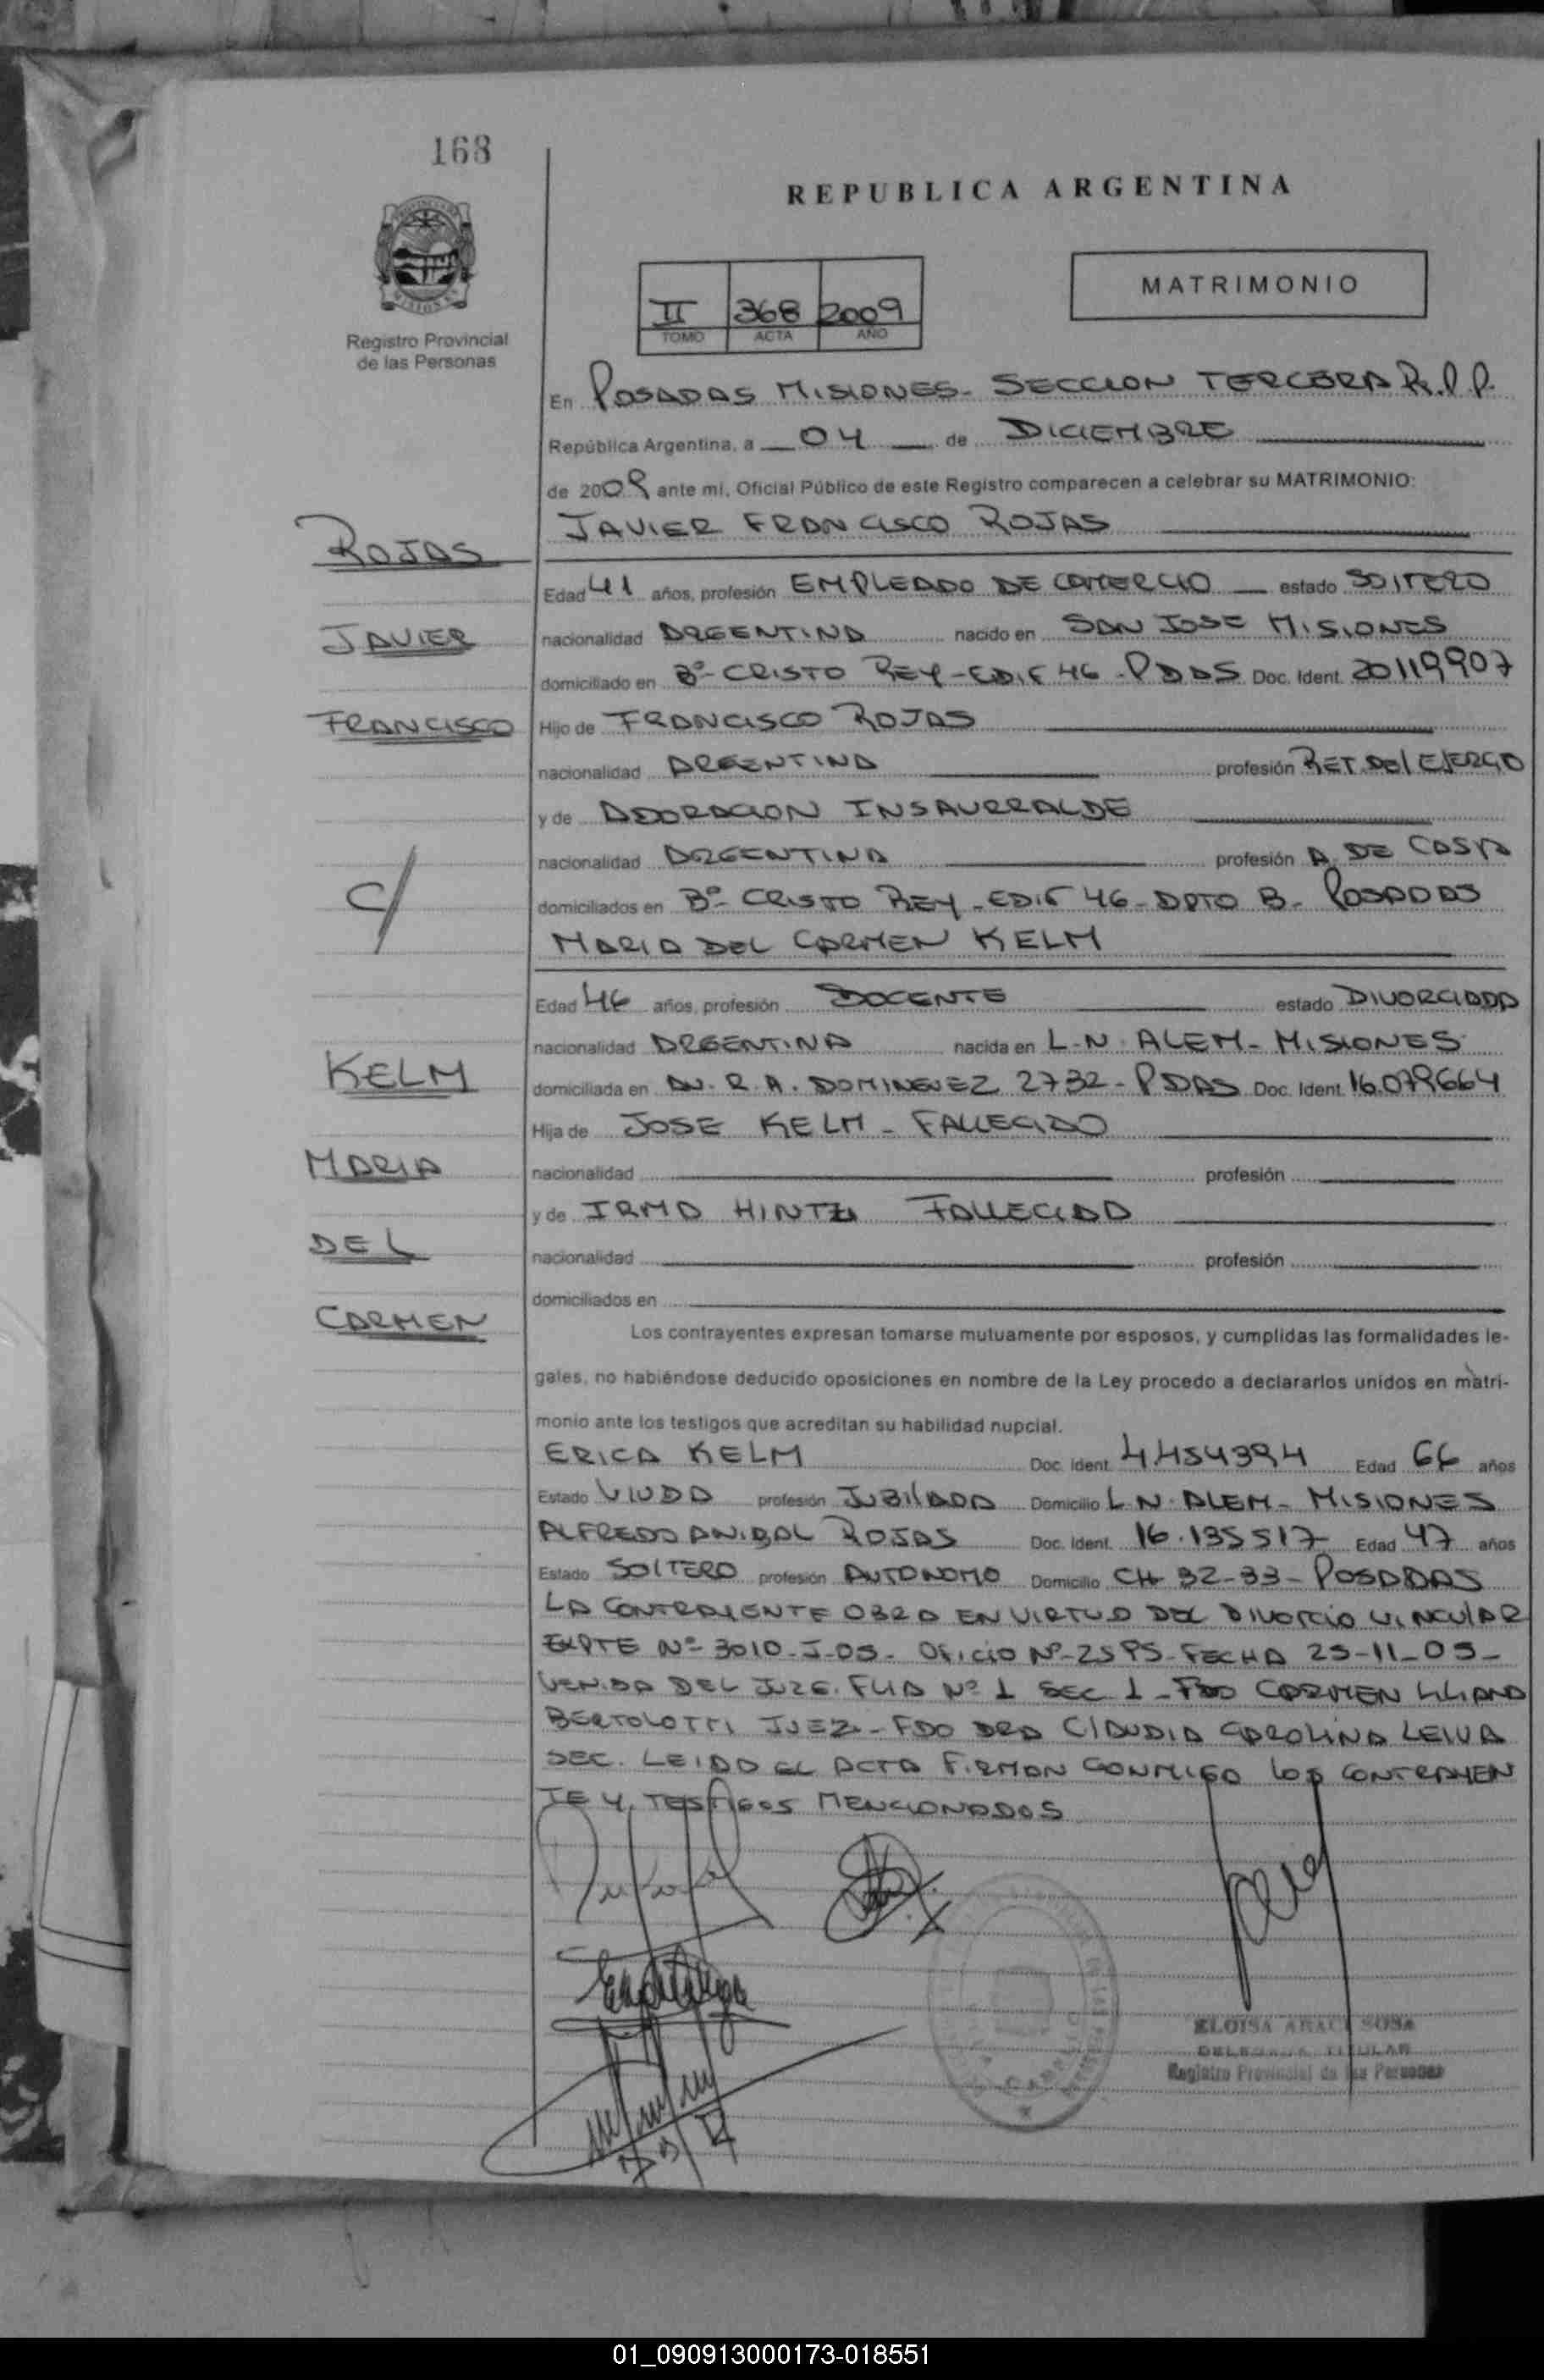 168
REPUBLICA ARGENTINA
Registro Provincial
de las Personas
II 368 2009
TOMO ACTA AÑO
MATRIMONIO
En POSADAS MISIONES- SECCION TERCERA R.P.P.
República Argentina, a 04 de DICIEMBRE
de 2009 ante mí, Oficial Público de este Registro comparecen a celebrar su MATRIMONIO:
JAVIER FRANCISCO ROJAS
ROJAS
Edad 41 años, profesión EMPLEADO DE COMERCIO estado SOLTERO
JAVIER
nacionalidad ARGENTINA nacido en SAN JOSE MISIONES
domiciliado en Bº- CRISTO REY-EDIF 46-PDAS Doc. Ident. 20119907
FRANCISCO
Hijo de FRANCISCO ROJAS
nacionalidad ARGENTINA profesión RET. DEL EJERCIO
y de ADORACION INSAURRALDE
nacionalidad ARGENTINA profesión A. DE CASA
C/
domiciliados en Bº- CRISTO REY-EDIF 46-DPTO B- POSADAS
MARIA DEL CARMEN KELM
Edad 46 años, profesión DOCENTE estado DIVORCIADA
nacionalidad ARGENTINA nacida en L-N-ALEM-MISIONES
KELM
domiciliada en AV. R. A. DOMINGUEZ 2732-PDAS Doc. Ident. 16.079664
Hija de JOSE KELM - FALLECIDO
MARIA
nacionalidad profesión
y de IRMA FALLECIDA
DEL
nacionalidad profesión
domiciliados en
CARMEN
Los contrayentes expresan tomarse mutuamente por esposos, y cumplidas las formalidades le-
gales, no habiéndose deducido oposiciones en nombre de la Ley procedo a declararlos unidos en matri-
monio ante los testigos que acreditan su habilidad nupcial.
ERICA KELM Doc. Ident. 4454394 Edad 66 años
Estado VIUDA profesión JUBILADA Domicilio L N. ALEM- MISIONES
ALFREDO ANIBAL ROJAS Doc. Ident. 16.135517 Edad 47 años
Estado SOLTERO profesión AUTONOMO Domicilio CH 32-33- POSADAS
LA CONTRAYENTE OBRA EN VIRTUD DEL DIVORCIO VINCULAR
EXPTE Nº- 3010-J-05- OFICIO Nº- FECHA 25-11-05-
VENIDA DEL JUZG. FLIA Nº 1 SEC 1-FDO CARMEN LILIANA
BERTOLOTTI JUEZ-FDO DRA CLAUDIA CAROLINA LEIVA
SEC. LEIDO EL ACTA FIRMAN CONMIGO LOS CONTRAYEN
TE Y TESTIGOS MENCIONADOS
ELOISA ARACI SOSA
DELEGADA TITULAR
Registro Provincial de las Personas
01_090913000173-018551